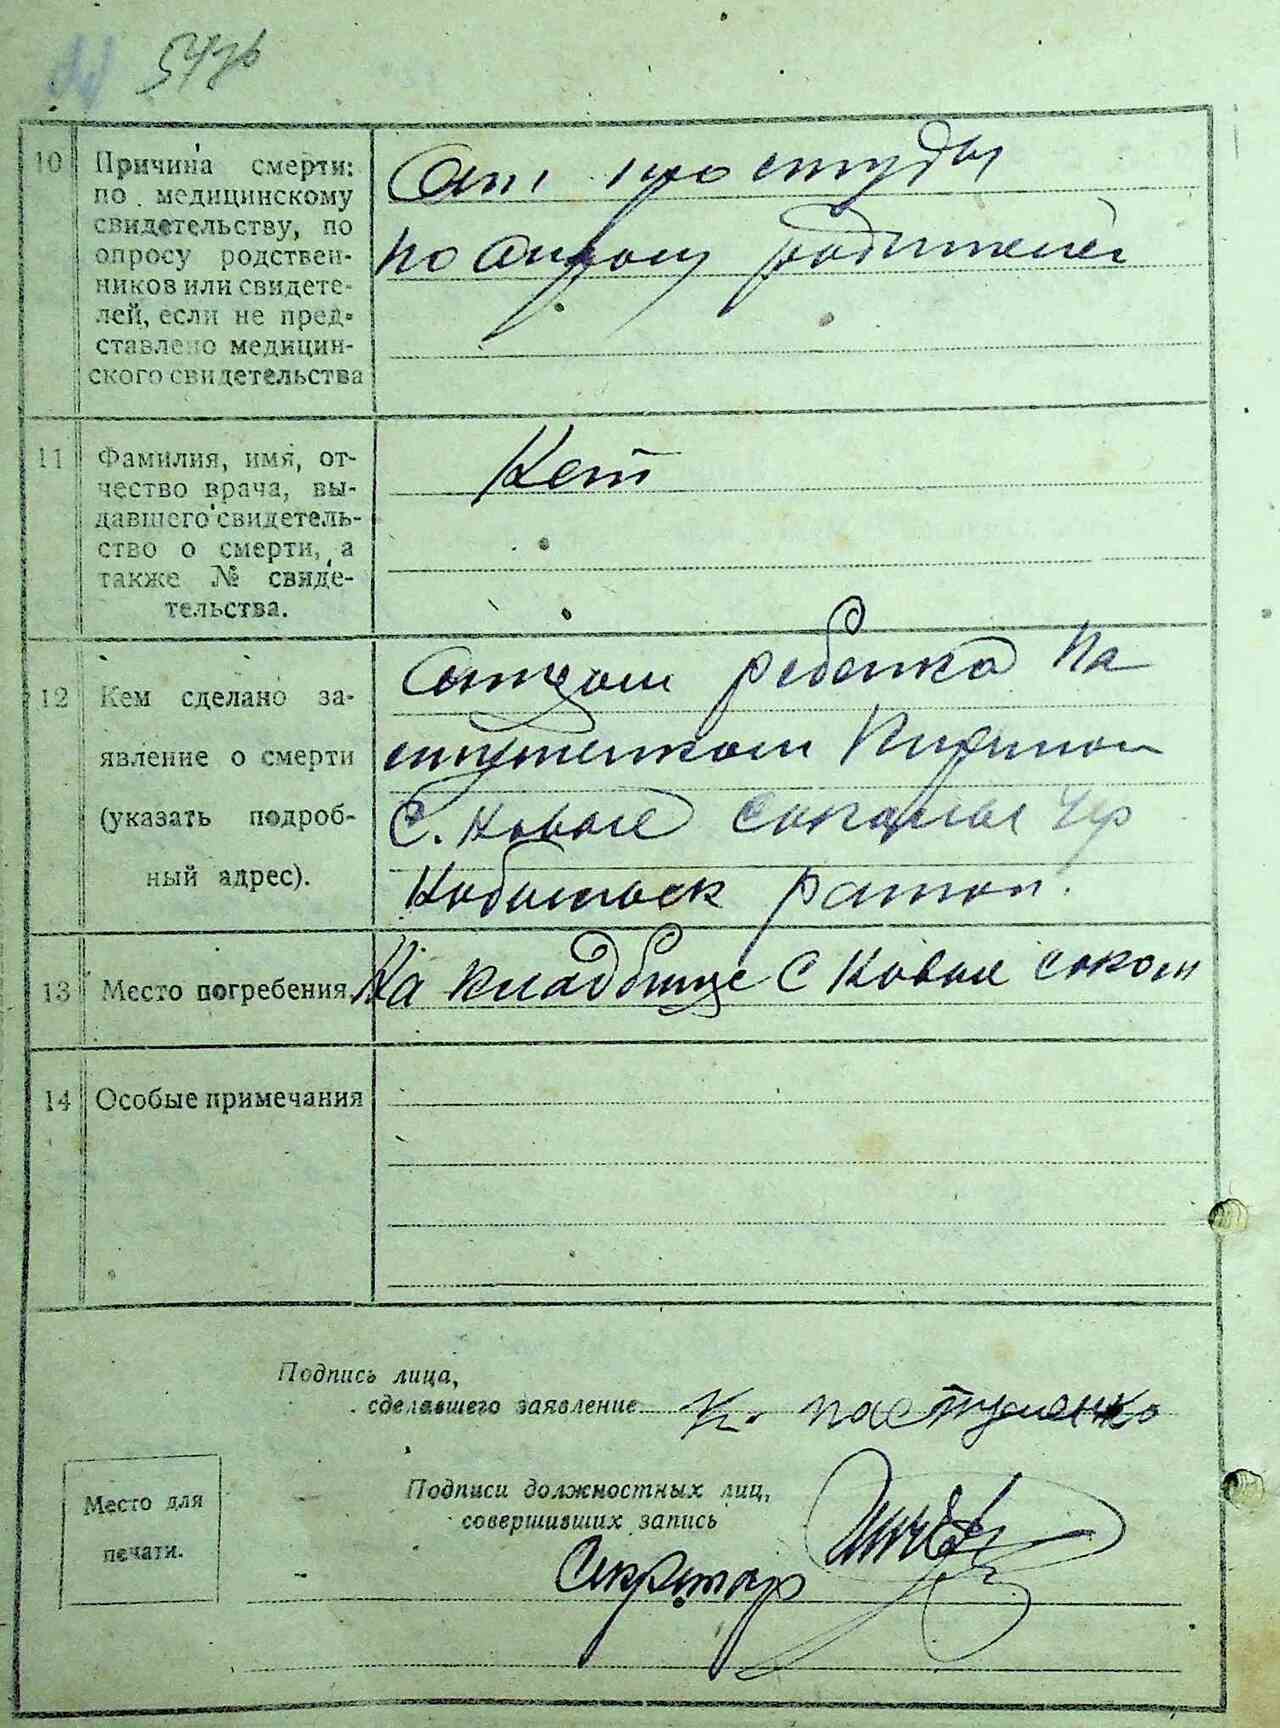 10 Причина смерти:
по медицинскому
свидетельству, по
опросу родствен-
ников или свидете-
лей, если не пред-
ставлено медицин-
ского свидетельства
От простуды
по опросу родителей
11 Фамилия, имя, от-
чество врача, вы-
давшего свидетель-
ство о смерти, а
также № свиде-
тельства.
Нет
12 Кем сделано за-
явление о смерти
(указать подроб-
ный адрес).
Отцом ребенка Па
стушенком
С. Новые
район.
13 Место погребения
На кладбище С Новые
14 Особые примечания
Подпись лица,
сделавшего заявление К. пастушенко
Подписи должностных лиц,
совершивших запись
Секретар
Место для
печати.